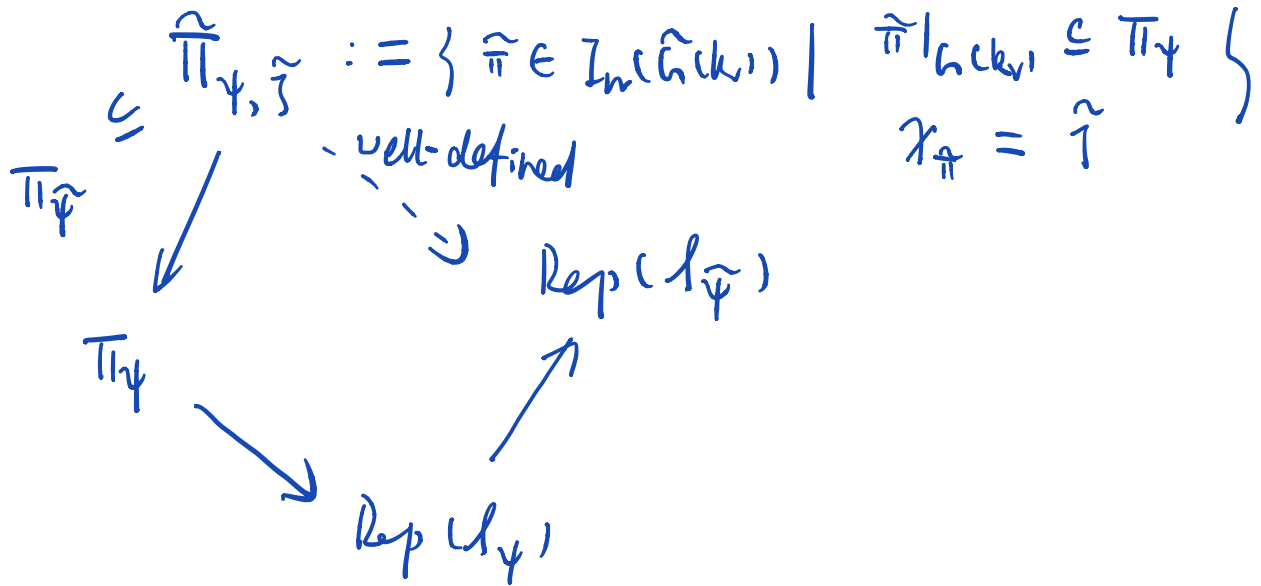 Π̃_{ψ, ζ̃} := { π̃ ∈ Irr(G̃(k_v)) | π̃|_{G(k_v)} ⊆ Π_ψ
χ_π̃ = ζ̃ }
⊆
well-defined
Π_ψ̃
Rep(S_ψ̃)
Π_ψ
Rep(S_ψ)